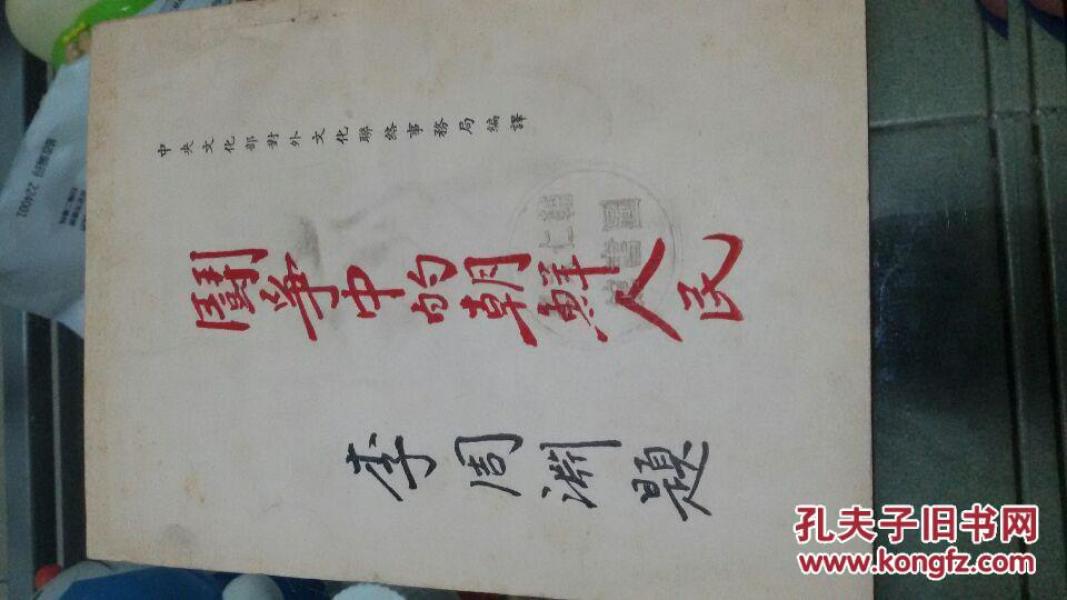 中央文化部對外文化聯絡事務局編譯
鬪爭中的朝鮮人民
李周淵題
224001
孔夫子旧书网
www.kongfz.com